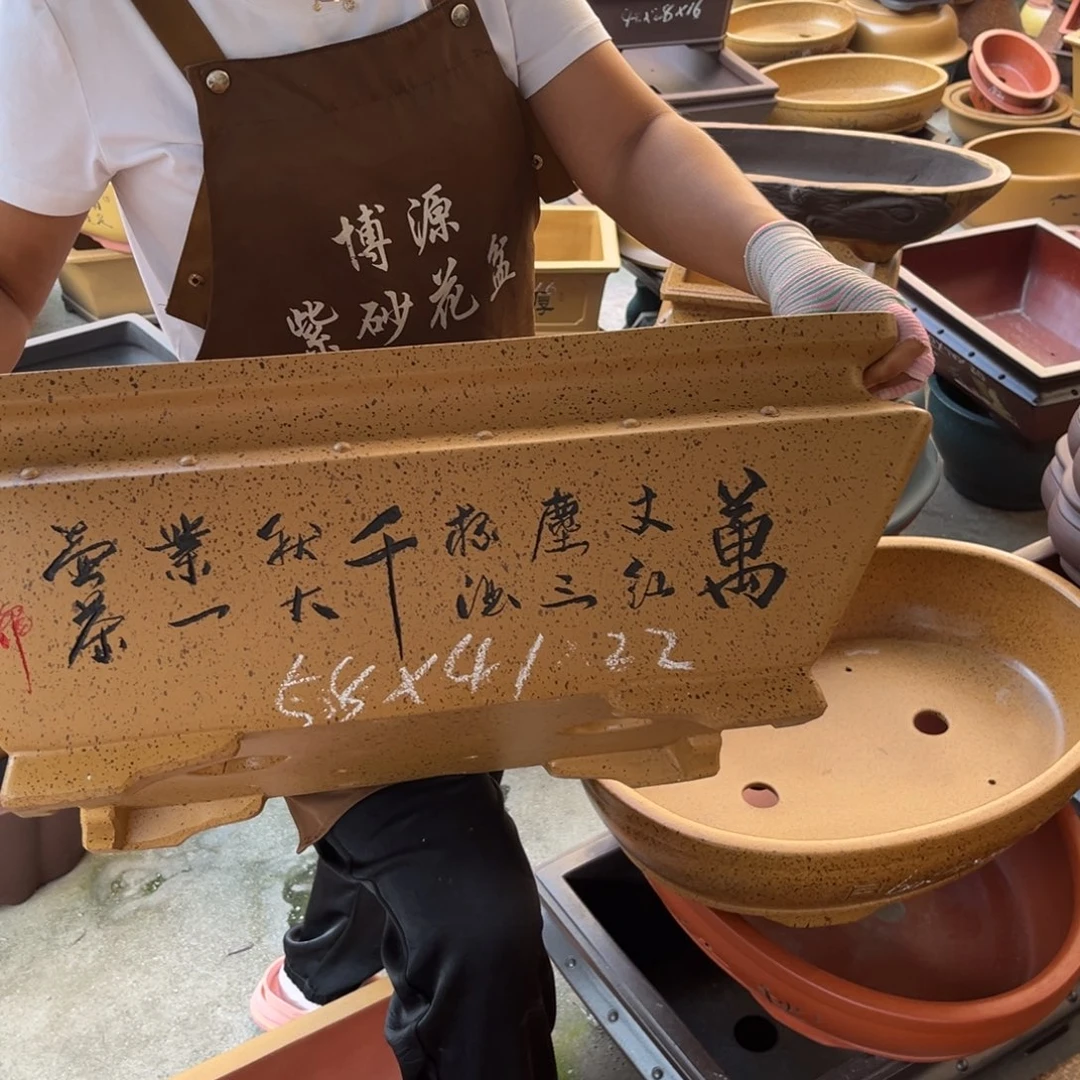 博源
紫砂花盆
萬
丈紅
塵三
杯酒
千
秋大
業一
壺茶
58x41 22